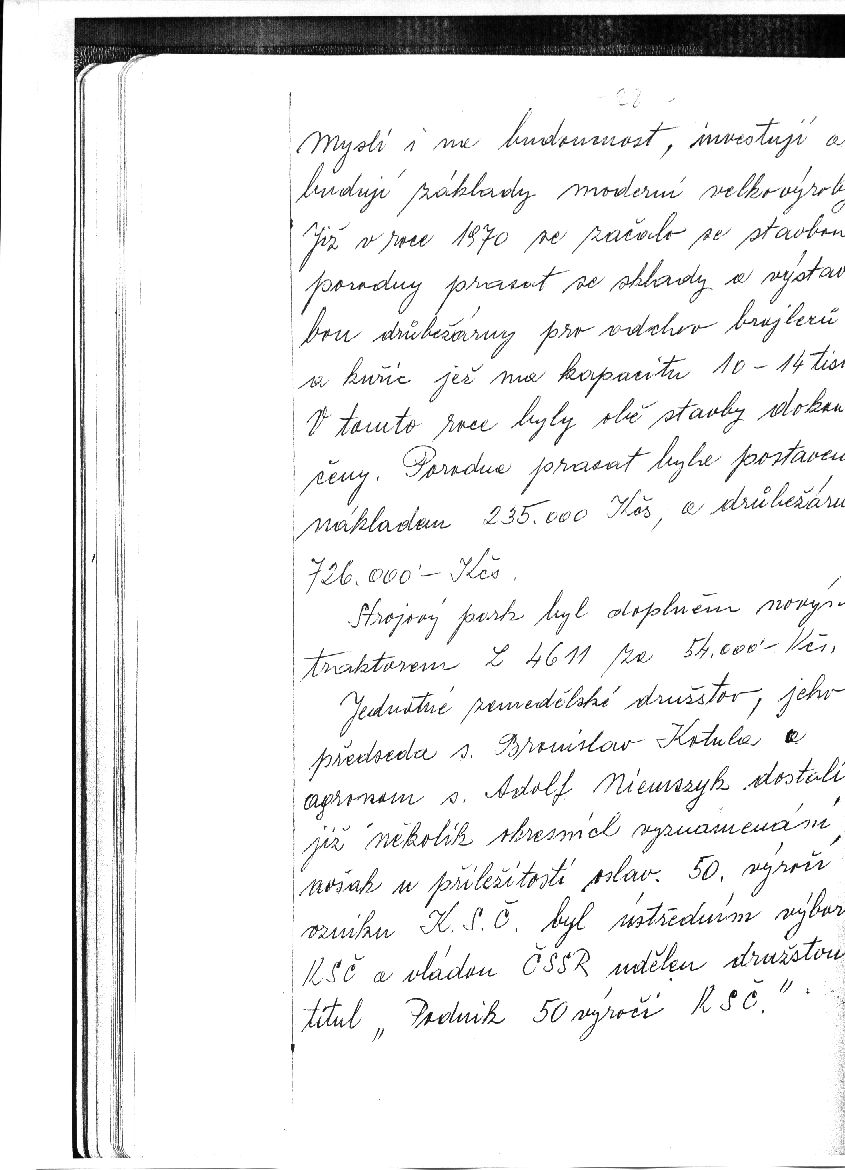 Myslí i na budoucnost, investují a
budují základy moderní velkovýroby
Již v roce 1970 se začalo se stavbou
porodny prasat se sklady a výstav
bou drůbežárny pro odchov brojlerů
a kuřic jež ma kapacitu 10 – 14 tisí
V tomto roce byly obě stavby dokon
čeny. Porodna prasat byla postaven
nákladem 235.000 Kčs, a drůbežárn
726.000'– Kčs.
Strojový park byl doplněn novým
traktorem Z 4611 za 54.000'– Kčs.
Jednotné zemedělské družstvo, jeho
předseda s. Bronislav Kotula a
agronom s. Adolf Niemszyk dostali
již několik okresních vyznamenání,
avšak u příležitosti oslav. 50. výročí
vzniku K.S.Č. byl ústředním výbor
KSČ a vládou ČSSR udělen družstvu
titul „Podnik 50 výročí KSČ."